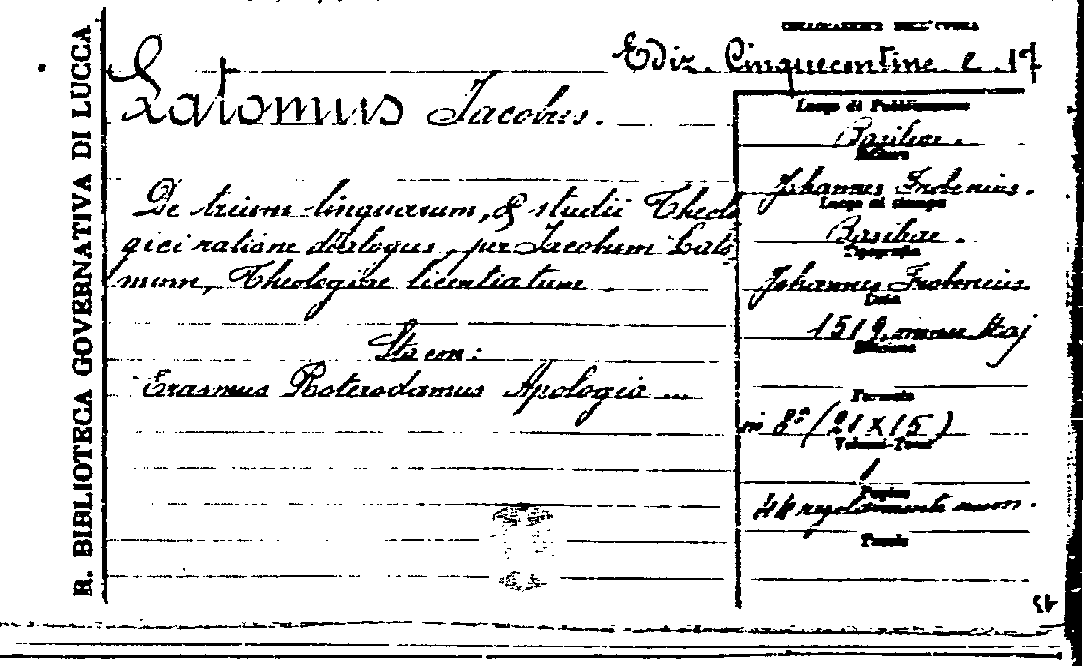 R. BIBLIOTECA GOVERNATIVA DI LUCCA
COLLOCAZIONE DELL'OPERA
Ediz. Cinquecentine. e. 17
Latomus Jacobus.
De trium linguarum, & studii Theolo
gici ratione dialogus, per Jacobum Lato
mum, Theologiae licentiatum.
Sta con:
Erasmus Roterodamus Apologia ...
Luogo di Pubblicazione
Basileae.
Editore
Johannes Frobenius.
Luogo di stampa
Basileae.
Tipografia
Johannes Frobenius.
Data
1519, mense Maj
Edizione
Formato
in 8° (21 X 15)
Volumi-Tomi
1
Pagine
44 regolarmente num.
Tavole